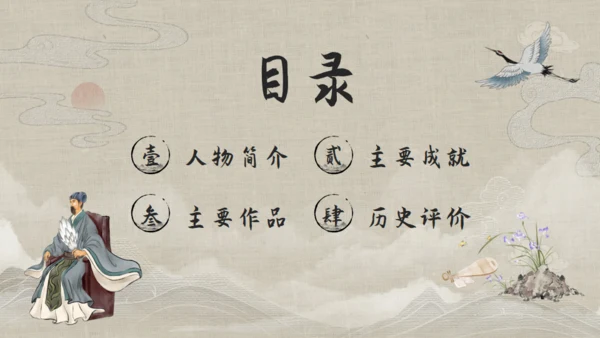 目录
壹 人物简介 贰 主要成就
叁 主要作品 肆 历史评价